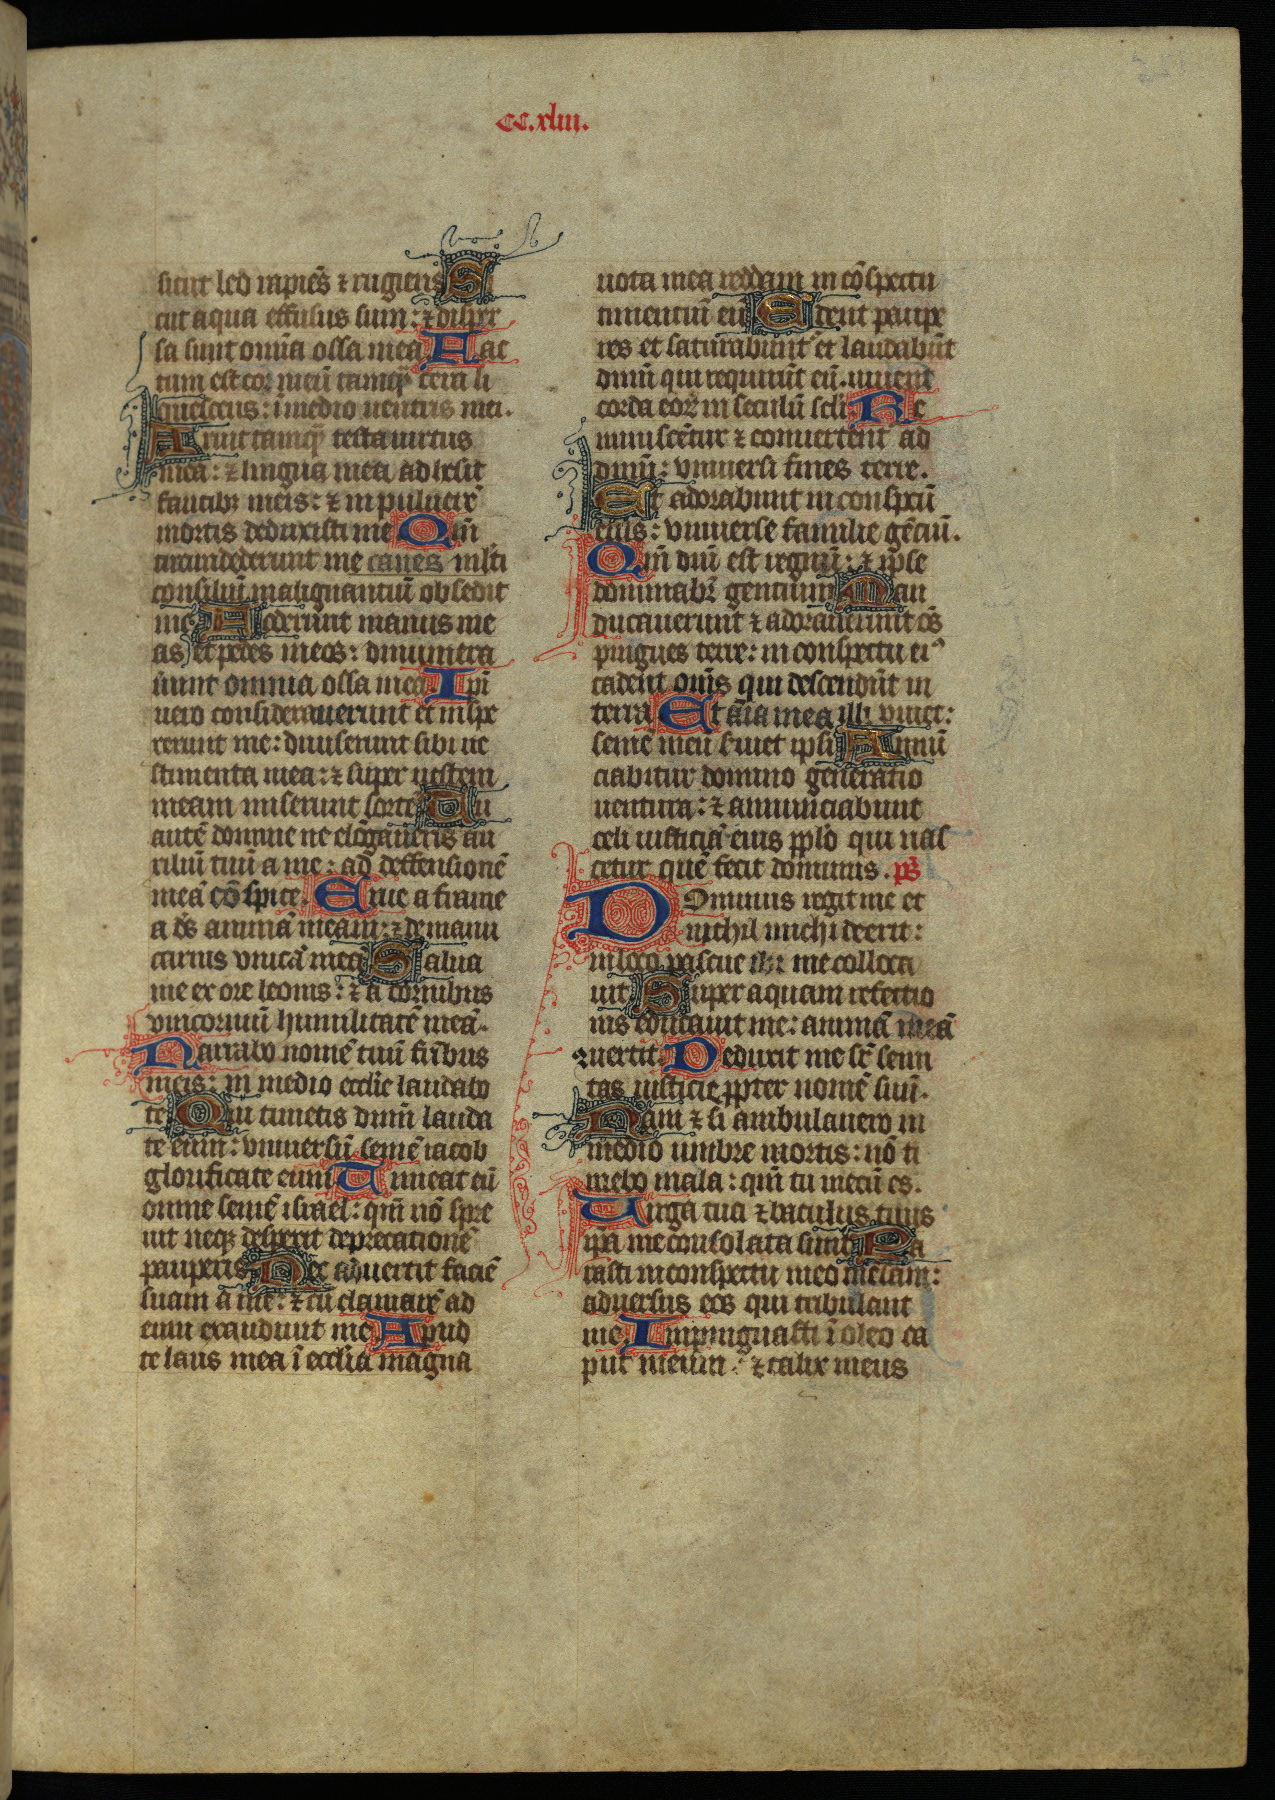 cc.xliii.
sicut leo rapiēs ⁊ rugiens Si
cut aqua effusus sum: ⁊ disper
sa sunt omīa ossa mea Fac
tum est cor meū tamq̄ cera li
quescens: ī medio uentris mei.
Aruit tamq̄ testa uirtus
mea: ⁊ lingua mea adhesit
faucibꝫ meis: ⁊ in puluerē
mortis deduxisti me Qm̄
circumdederunt me canes ml̓ti
consiliū malignantiū obsedit
me Foderunt manus me
as et pedes meos: dinumera
uerunt omnia ossa mea Ipī
uero considerauerunt et inspe
xerunt me: diuiserunt sibi ue
stimenta mea: ⁊ super uestem
meam miserunt sortē Tu
autē domine ne elōgaueris au
xiliū tuū a me: ad deffensionē
meā cōspice. Erue a frame
a dēs animā meam: ⁊ de manu
canis vnicā meā Salua
me ex ore leonis: ⁊ a cornibus
vnicorniū humilitatē meā.
Narrabo nomē tuū fr̄ibus
meis: in medio ecclīe laudabo
te Qui timetis dnm̄ lauda
te eum: vniuersū semē iacob
glorificate eum Timeat eū
omne semē israel: qm̄ nō spre
uit neqꝫ despexit deprecationē
pauperis Nec aduertit faciē
suam a me: ⁊ cū clamarē ad
eum exaudiuit me Apud
te laus mea ī ecclīa magna
uota mea reddam in cōspectu
timentiū eū Edent paupe
res et saturabunt et laudabūt
dnm̄ qui requirūt eū. uiuent
corda eoꝝ in seculū scl̄i Re
miniscētur ⁊ conuertent ad
dnm̄: vniuersi fines terre.
Et adorabunt in conspectū
eius: vniuerse familie gētiū.
Qm̄ dnī est regnū: ⁊ ip̄e
dominabr̄ gentium Man
ducauerunt ⁊ adorauerunt oēs
pingues terre: in conspectu eiꝰ
cadent om̄s qui descendūt in
terrā Et aīa mea illi viuet:
semē meū s̓uiet ipsi Annū
ciabitur domino generatio
uentura: ⁊ annunciabunt
celi iusticiā eius ppl̄o qui nas
cetur quē fecit dominus. ps̄
Dominus regit me et
nichil michi deerit:
in loco pascue ibi me colloca
uit Super aquam refectio
nis educauit me: animā meā
ꝯuertit. Deduxit me sr̄ semi
tas iusticie ꝓpter nomē suū.
Nam ⁊ si ambulauero in
medio umbre mortis: nō ti
mebo mala: qm̄ tu mecū es.
Uirga tua ⁊ baculus tuus
ip̄a me consolata sunt Pa
rasti in conspectu meo mēsam:
aduersus eos qui tribulant
me. Impinguasti ī oleo ca
put meum: ⁊ calix meus